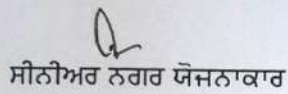 ਸੀਨੀਅਰ ਨਗਰ ਯੋਜਨਾਕਾਰ